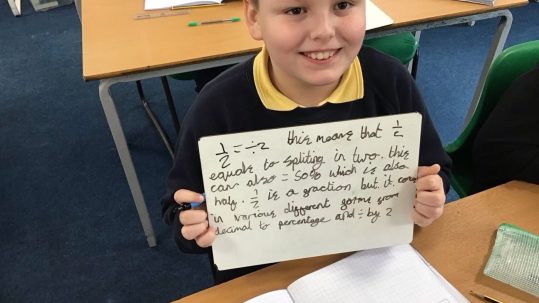 1/2 = ÷2 this means that 1/2
equals to spliting in two. this
can also = 50% which is also
half. 1/2 is a fraction but it comes
in various different forms from
decimal to percentage and ÷ by 2